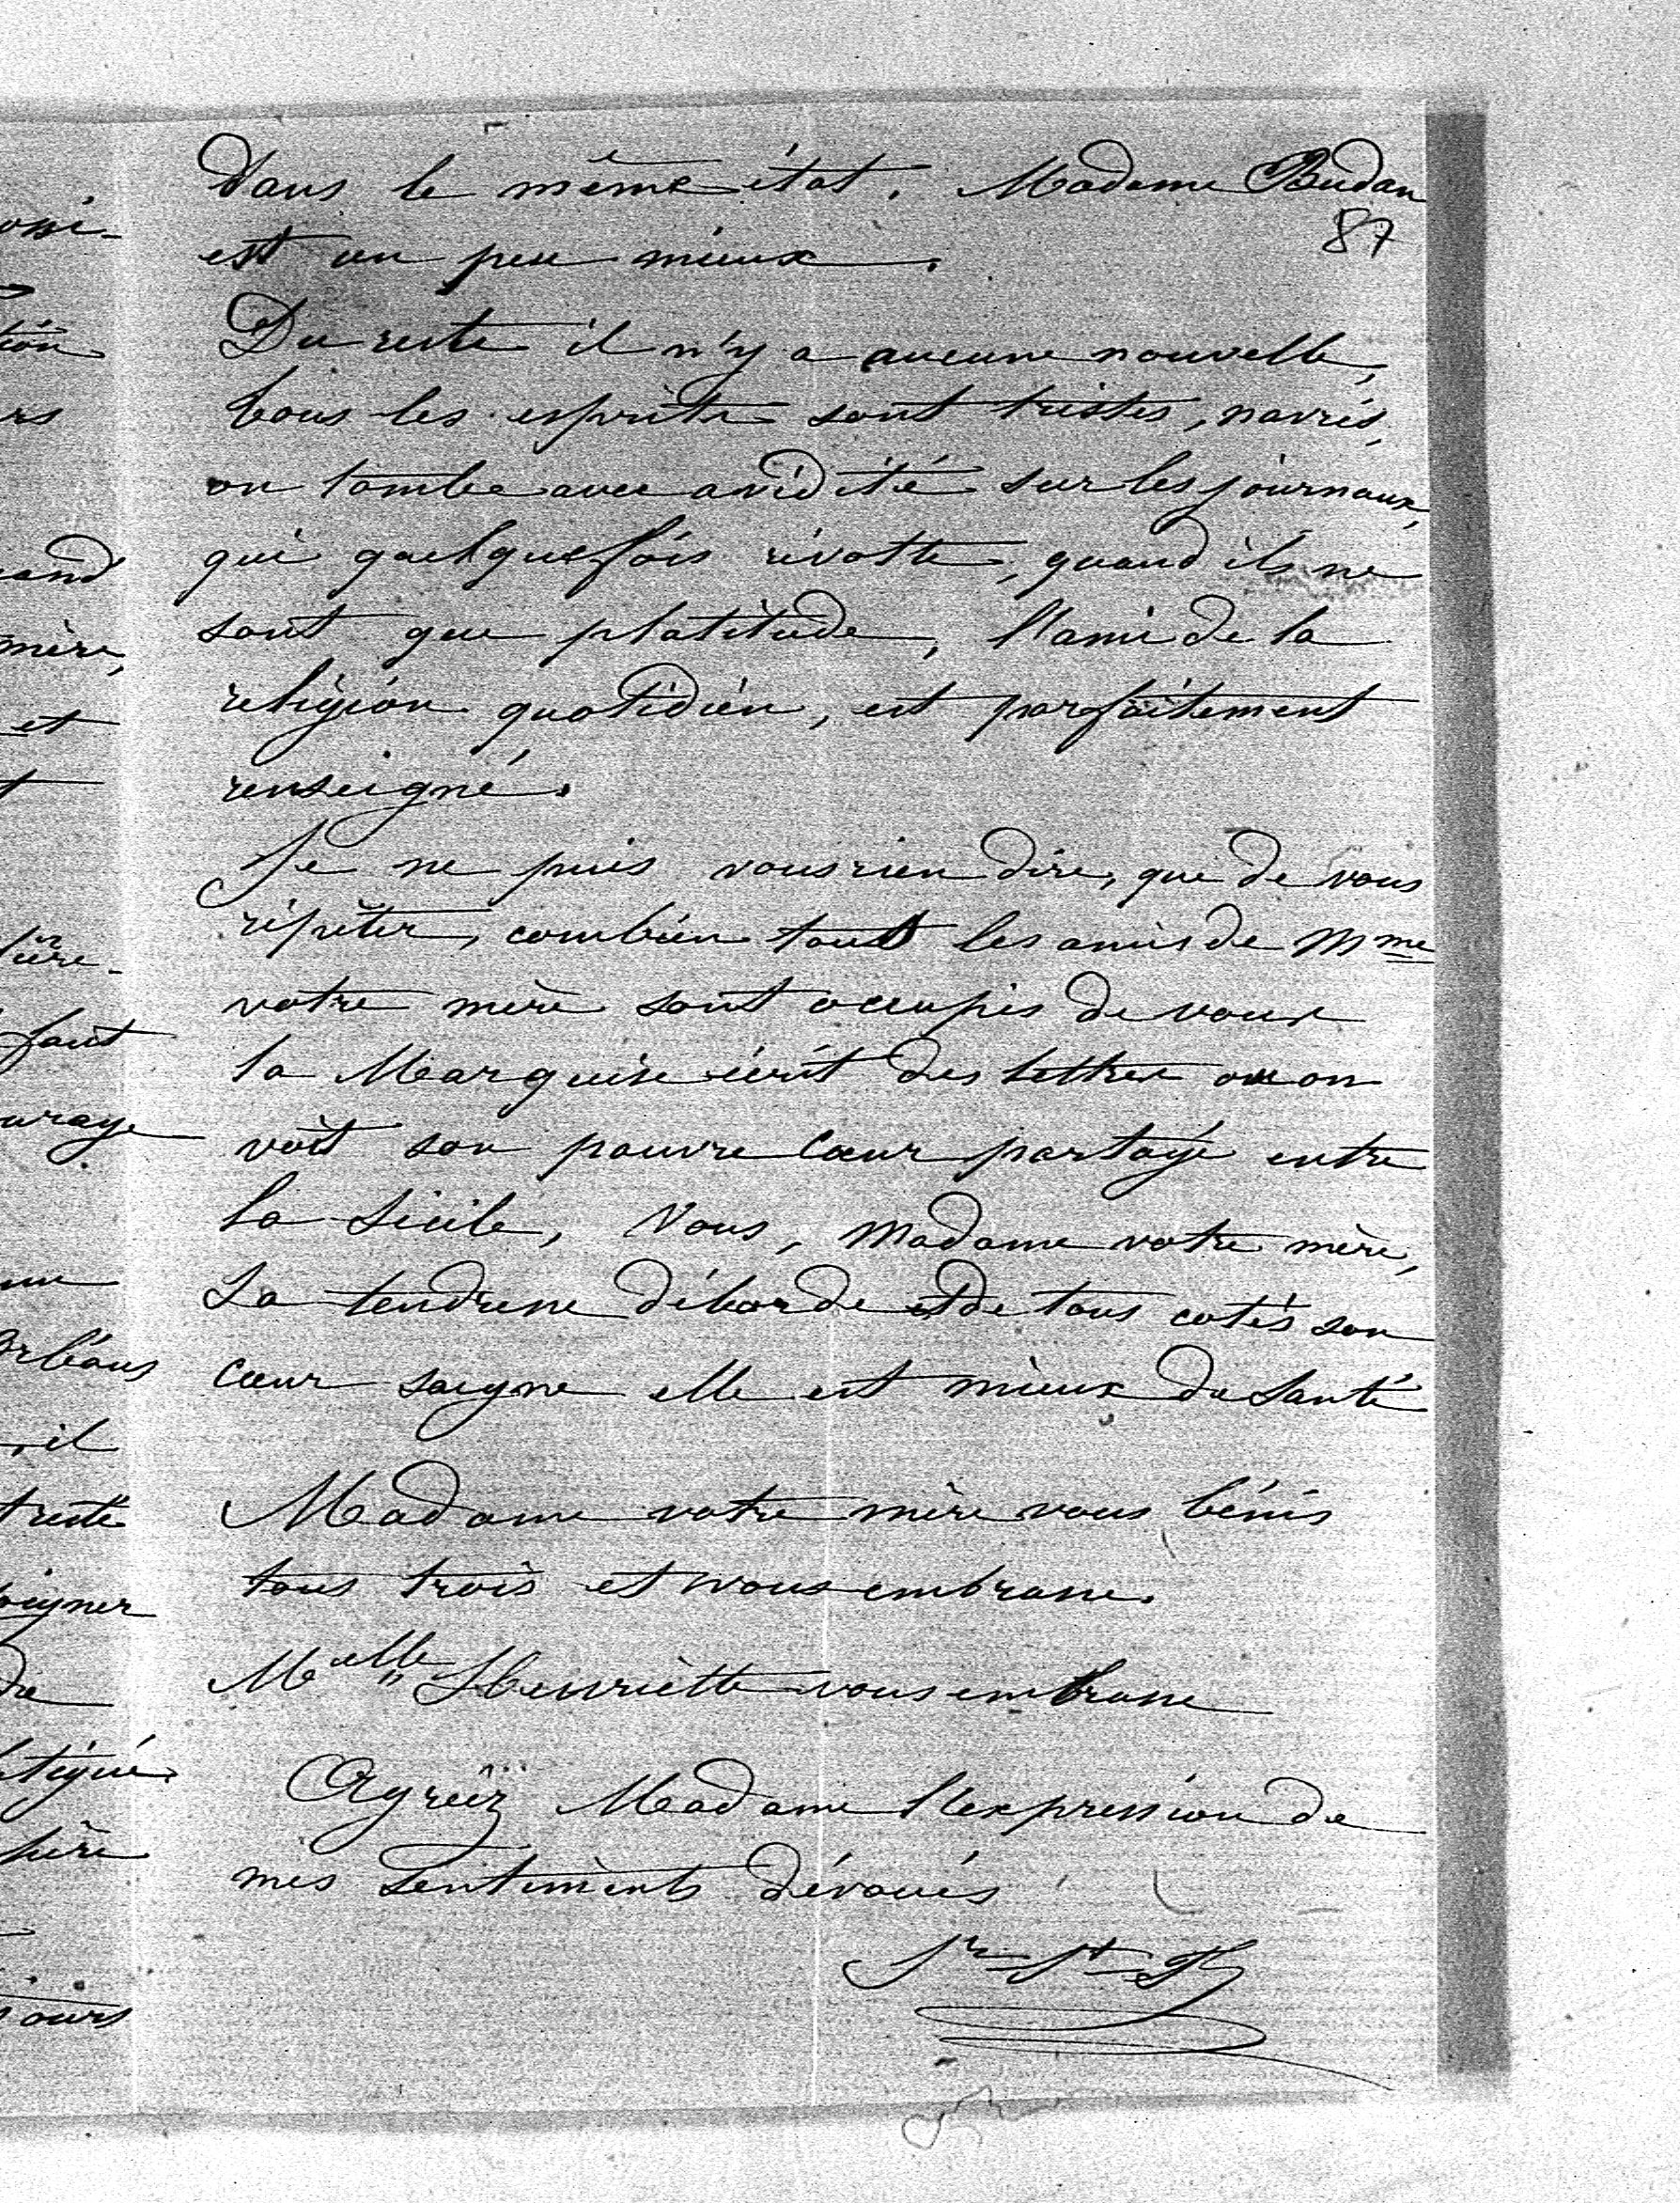 Dans le même état. Madame Budan
87
est un peu mieux.
Du reste il n'y a aucune nouvelle,
tous les esprits sont tristes, navrés,
on tombe avec avidité sur les journaux,
qui quelquefois révolte, quand ils ne
sont que platitude, l'ami de la
religion quotidien, est parfaitement
renseigné.
Je ne puis vous rien dire, que de vous
répéter, combien tous les amis de Mme
votre mère sont occupés de vous
la Marquise écrit des lettres ou on
voit son pauvre cœur partagé entre
la Sicile, Vous, Madame votre mère,
Sa tendresse déborde et de tous cotés son
cœur saigne elle est mieux de santé
Madame votre mère vous bénis
tous trois et vous embrasse.
Melle Henriette vous embrasse
Agréez Madame l'expression de
mes sentiments dévoués
ossi-
tion
rs
and
mère,
et
t
ière-
faut
urage
Orléans
il
triste
oigner
de
atigué
père
jours